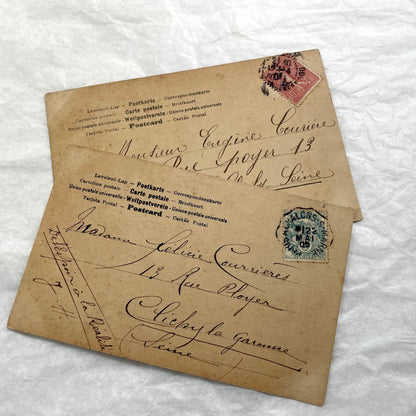 Levelező-Lap — Postkarte — Correspondenzkarte
Cartolina postale — Carte postale — Briefkaart
Union postale universelle — Weltpostverein — Unione postale universale
Tarjeta Postal — Postcard — Cartão Postal
Monsieur Eugène Courrière
Rue Ployer 13
Seine
Levelező-Lap — Postkarte — Correspondenzkarte
Cartolina postale — Carte postale — Briefkaart
Union postale universelle — Weltpostverein — Unione postale universale
Tarjeta Postal — Postcard — Cartão Postal
22
MAI
05
Madame Félicie Courrières
13 Rue Ployer
Clichy la Garenne
Seine